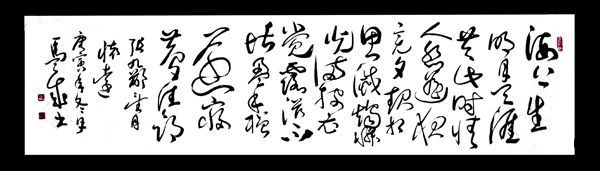 海上生
明月天涯
共此时情
人怨遥夜
竟夕起相
思灭烛怜
光满披衣
觉露滋不
堪盈手赠
还寝
梦佳期
张九龄望月
怀远
庚寅年冬月
书